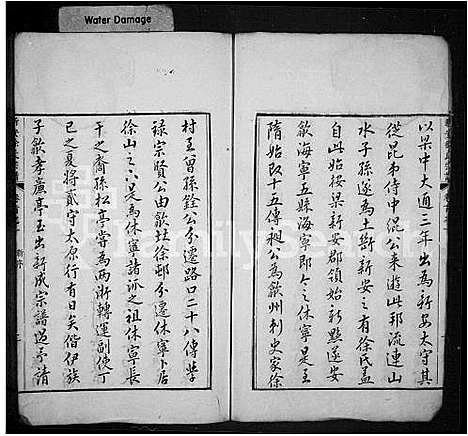 Water Damage
以梁中大通三年出為新安太守其
從昆弟侍中緄公來遊此邦流連山
水子孫遂為土斷新安之有徐氏蓋
自此始按梁新安郡領始新黟遂安
歙海寧五縣海寧即今之休寧是王
隋始改十五傳昶公為歙州刺史家徐
村王曾孫銓公分遷路口二十八傳學
祿宗賢公由歙拄徐邨分遷休寧卜居
徐山之六是為休寧諸派之祖休寧長
干之裔孫松亭嘗為兩浙轉運副使丁
巳之夏將貳守太原行有日矣偕伊族
子歙孝廣亭玉出新成宗譜過予請
FamilySearch